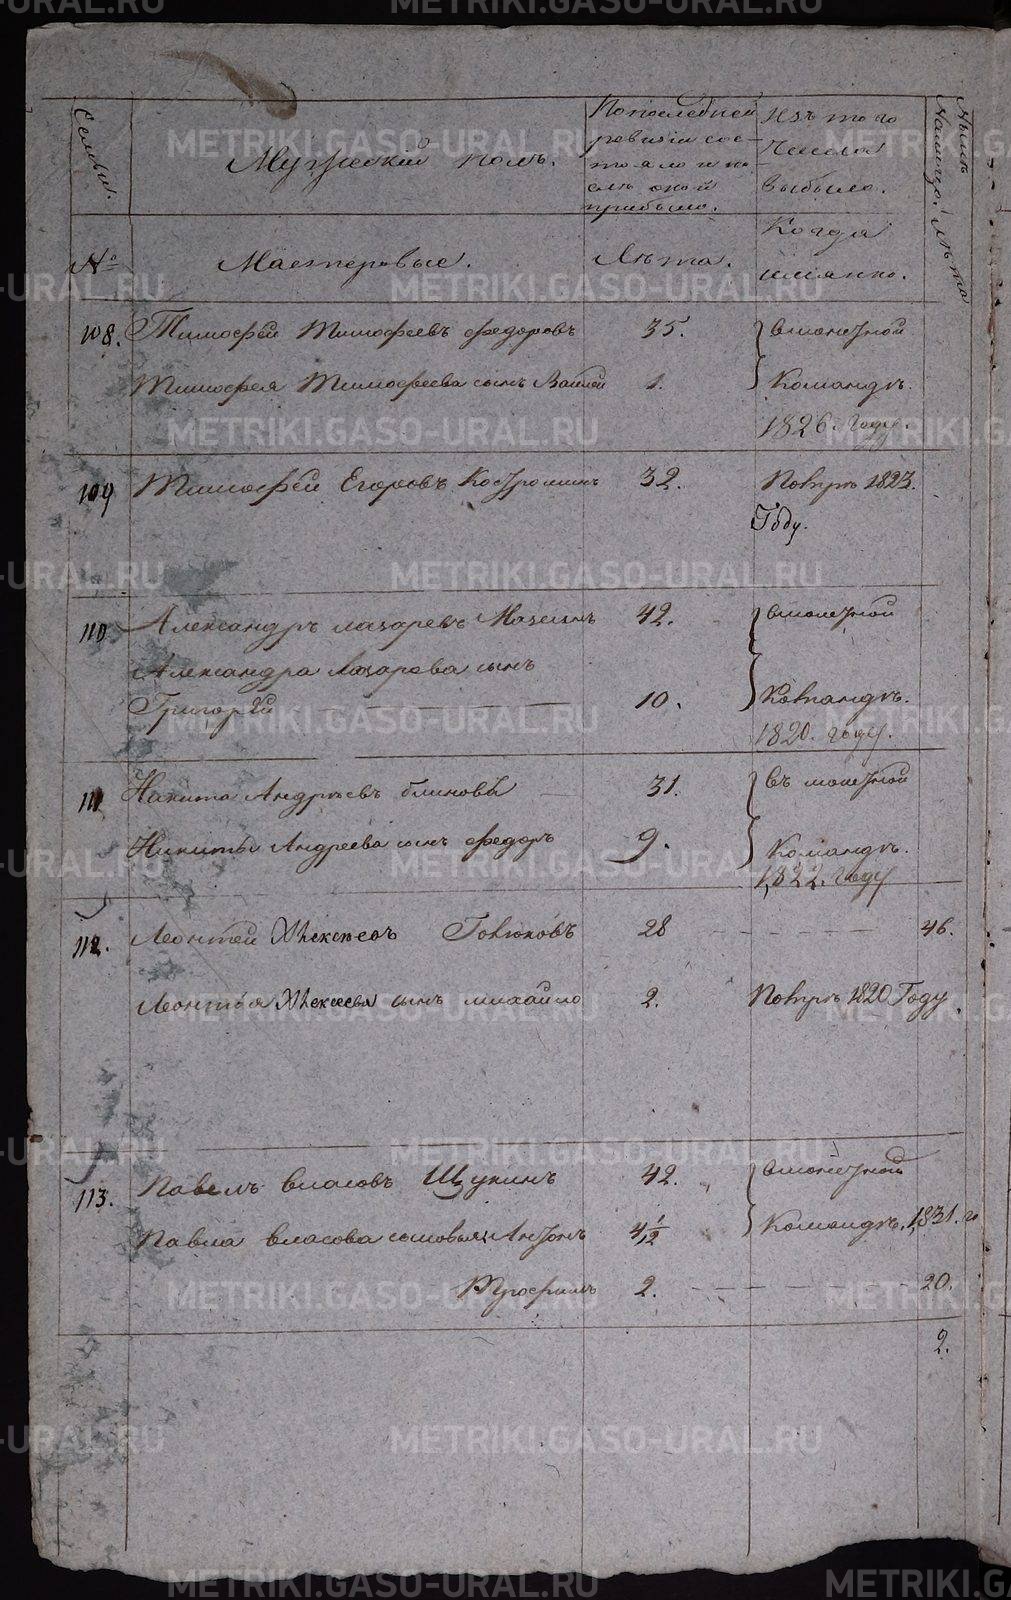 Семьи.
Мужеский полъ.
По последней
ревизiи сос-
тояло и по
слѣ оной
прибыло.
Изъ того
числа
выбыло.
Нынѣ
на лицо.
Лѣта
№
Мастеровые.
Лѣта.
Когда
имянно.
108. Тимофей Тимофеевъ Федоровъ 35. вмонетной
Тимофея Тимофеева сынъ 1. Командѣ.
1826. году.
109 Тимофей Егоровъ Костроминъ 32. Помре 1823.
Году.
110 Александръ лазаревъ 42. вмонетной
Александра лазарева сынъ
Григорiй 10. Командѣ.
1820. году.
111 Никита Андреевъ блиновъ 31. въ монетной
Никиты Андреева сынъ Федоръ 9. Командѣ.
1822. году
112. Леонтей Алексеевъ 28 46.
Леонтья Алексеева сынъ михайло 2. Помре 1820 Году.
113. Павелъ власовъ Щукинъ 42. вмонетной
Павла власова сыновья, Антонъ 4 1/2 Командѣ. 1831. го
Трофимъ 2. 20.
2.
METRIKI.GASO-URAL.RU